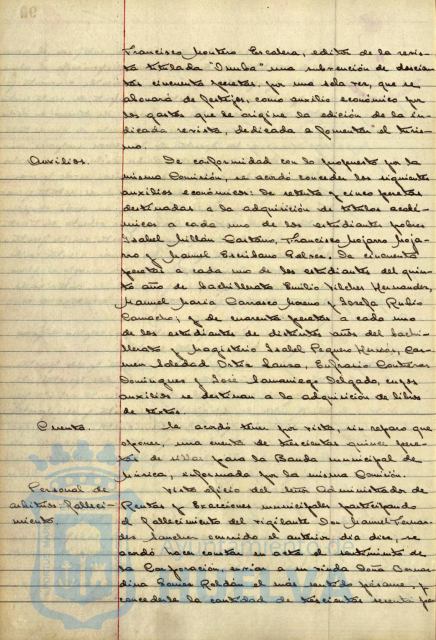 Francisco Montero Escalera, editor de la revis-
ta titulada "Onuba" una subvención de doscien-
tas cincuenta pesetas, por una sola vez, que se
abonará de festejos, como auxilio económico por
los gastos que se origine la edición de la in-
dicada revista, dedicada a fomentar el turis-
mo.
Auxilios. De conformidad con lo propuesto por la
misma Comisión, se acordó conceder los siguientes
auxilios económicos: De setenta y cinco pesetas
destinadas a la adquisición de títulos acadé-
micos a cada uno de los estudiantes pobres
Isabel Millán Francisco Mojarro Moja-
rro y Manuel Escribano De cincuenta
pesetas a cada uno de los estudiantes del quin-
to año de bachillerato Emilio Vilches Hernández,
Manuel María Carrasco Moreno y Josefa Rubio
Camacho; y de cuarenta pesetas a cada uno
de los estudiantes de distintos años del bachi-
llerato y Magisterio Isabel Peguero Car-
men Soledad Ortiz Eufrasio Contreras
Domínguez y José Samaniego Delgado, cuyos
auxilios se destinan a la adquisición de libros
de textos.
Cuenta. Se acordó tener por vista, sin reparo que
oponer, una cuenta de trescientas quince pese-
tas de sillas para la Banda municipal de
Música, informada por la misma Comisión.
Personal de Visto oficio del Administrador de
arbitrios. Falleci- Rentas y Exacciones municipales participando
miento. el fallecimiento del vigilante Don Manuel Fernan-
dez Sanchez ocurrido el anterior día doce, se
acordó hacer constar en acta el sentimiento de
la Corporación, enviar a su viuda Doña Bernar-
dina Gomez Roldán el más sentido pésame, y
concederle la cantidad de trescientas